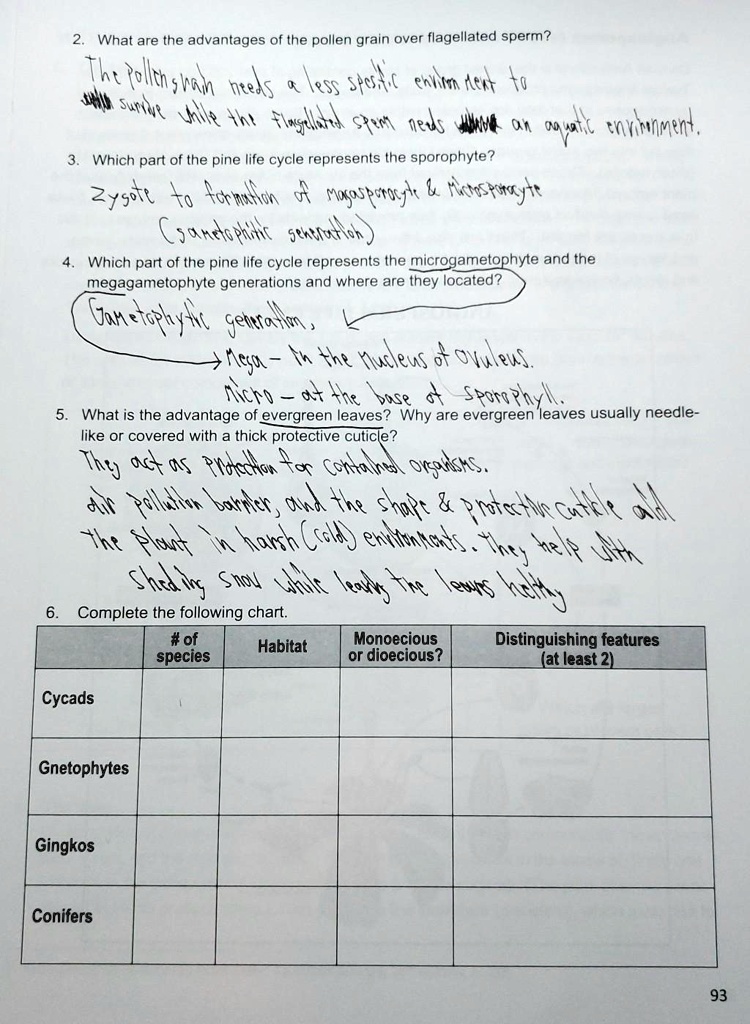 2. What are the advantages of the pollen grain over flagellated sperm?
The pollen grain needs a less spesific environment to
survive while the flagellated sperm needs an aquatic environment.
3. Which part of the pine life cycle represents the sporophyte?
Zygote to formation of magasporocyte & microsporocyte
(gametophitic generation)
4. Which part of the pine life cycle represents the microgametophyte and the
megagametophyte generations and where are they located?
Gametophytic generation,
Mega - in the nucleus of ovuleus.
micro - at the base of sporophyll.
5. What is the advantage of evergreen leaves? Why are evergreen leaves usually needle-
like or covered with a thick protective cuticle?
They act as protection for contained organisms.
air pollution barrier, and the shape & protective cuticle aid
the plant in harsh (cold) environments. They help with
sheding snow while leaving the leaves helthy
6. Complete the following chart.
# of species Habitat Monoecious or dioecious? Distinguishing features (at least 2)
Cycads
Gnetophytes
Gingkos
Conifers
93